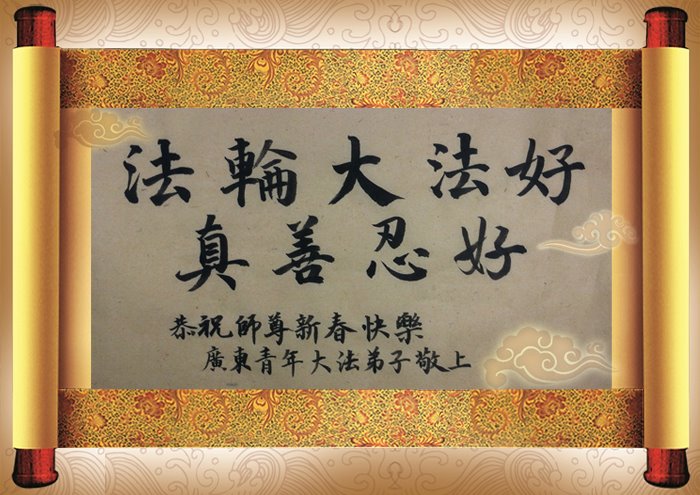 法輪大法好
真善忍好
恭祝師尊新春快樂
廣東青年大法弟子敬上